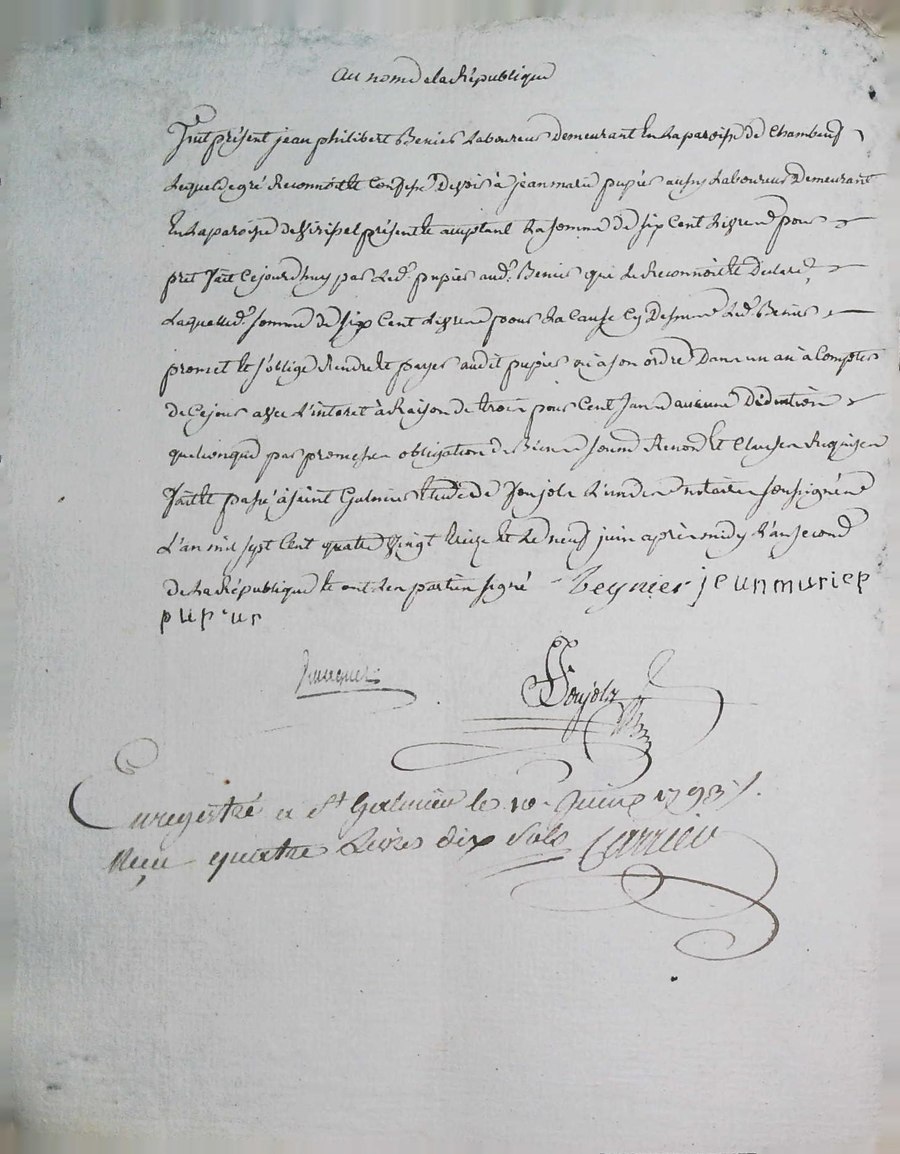 au nom de la République
fut présent jean philibert Benier Laboureur Demeurant En la paroisse de Chambeuf
Lequel de gré Reconnoit et Confesse Devoir à jean marie pupier aussy Laboureur Demeurant
En la paroisse de présent et acceptant La somme de six Cent Livres pour
pret fait Cejourdhuy par Led. pupier aud. Benier qui Le Reconnoit et Declare
Laquelle d. somme de six Cent Livres pour La Cause Cy Dessus Led. Benier
promet et s'oblige Rendre et payer audit pupier ou à son ordre Dans un an à Compter
de Cejour avec L'interet à Raison de trois pour Cent sans aucune Déduction
quelconque par promesses obligation de Biens soum Renon et Clauses Requises
fait et passé à saint Galmier Etude de Joujols L'un des notaires soussignés
L'an mil sept Cent quatre vingt treize et Le neuf juin après midy L'an second
de La République et ont Les parties signé Beynier jeunmuriep
pup ur
Joujols
Enregistré a St Galmier le 10. Juin 1793
Reçu quatre Livres dix sols Carrier